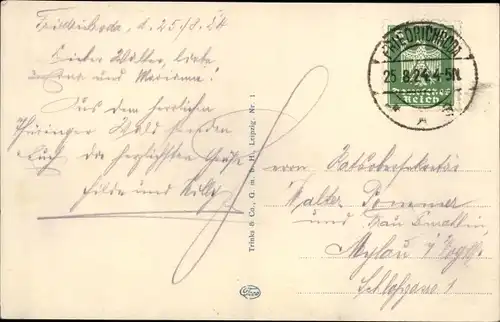 Friedrichroda, d. 25/8.24
Lieber Walter, liebe
und Marianne!
Aus dem herrlichen
Thüringer Wald senden
Euch die herzlichsten Grüße
Hilde und Willi
Trinks & Co., G. m. b. H., Leipzig. Nr. 1
FRIEDRICHRODA
25.8.24.4-5N
Deutsches
Reich
Herrn
Walter Pommer
und Frau
Mylau i/Vogtl.
Schloßgasse 1